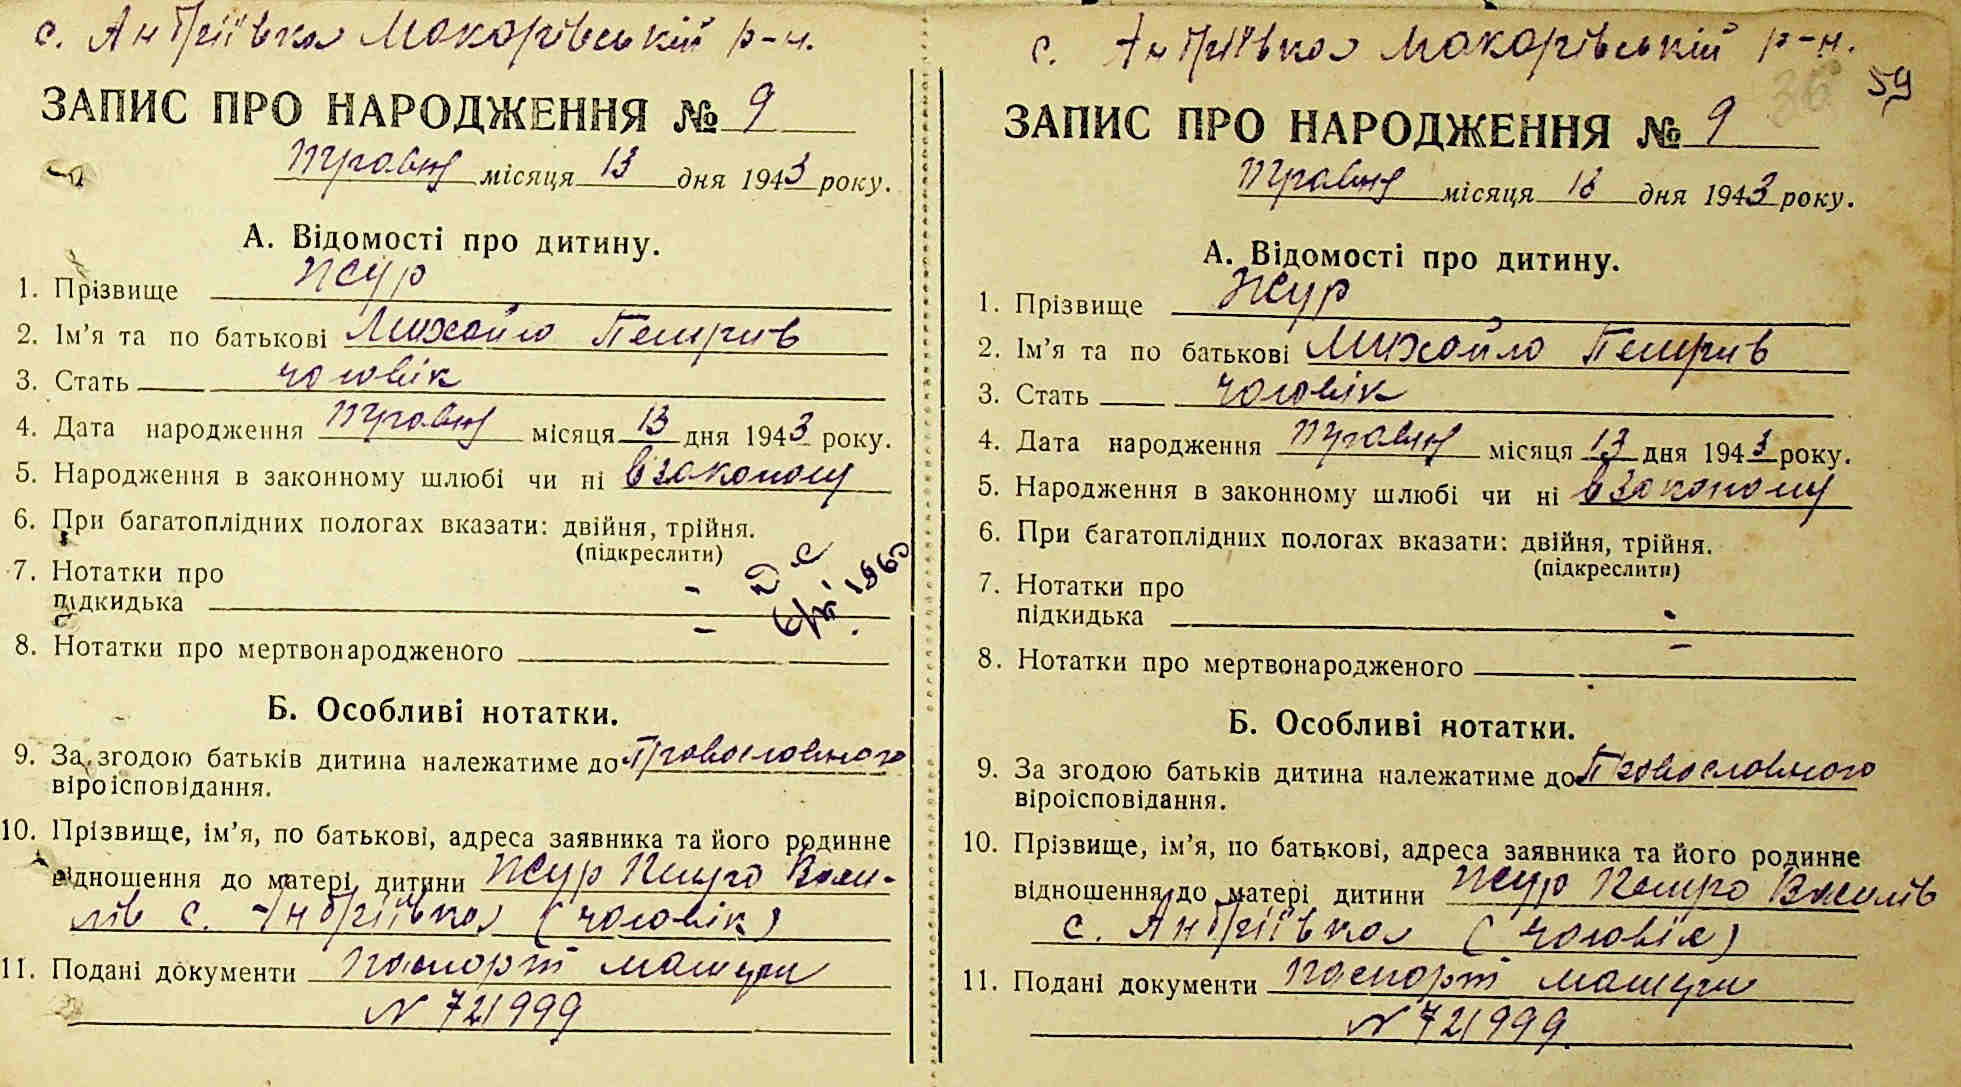 с. Андріївка Макарівський р-н.
ЗАПИС ПРО НАРОДЖЕННЯ № 9
травня місяця 13 дня 1943 року.
А. Відомості про дитину.
1. Прізвище Жур
2. Ім’я та по батькові Михайло Петрів
3. Стать чоловік
4. Дата народження травня місяця 13 дня 1943 року.
5. Народження в законному шлюбі чи ні в законому
6. При багатоплідних пологах вказати: двійня, трійня.
(підкреслити)
7. Нотатки про
підкидька -
8. Нотатки про мертвонародженого -
Б. Особливі нотатки.
9. За згодою батьків дитина належатиме до Православного
віроісповідання.
10. Прізвище, ім’я, по батькові, адреса заявника та його родинне
відношення до матері дитини Жур Петро Васи-
лів с. Андріївка (чоловік)
11. Подані документи паспорт матери
N 721999
с. Андріївка Макарівський р-н.
36 59
ЗАПИС ПРО НАРОДЖЕННЯ № 9
травня місяця 13 дня 1943 року.
А. Відомості про дитину.
1. Прізвище Жур
2. Ім’я та по батькові Михайло Петрів
3. Стать чоловік
4. Дата народження травня місяця 13 дня 1943 року.
5. Народження в законному шлюбі чи ні в законому
6. При багатоплідних пологах вказати: двійня, трійня.
(підкреслити)
7. Нотатки про
підкидька -
8. Нотатки про мертвонародженого -
Б. Особливі нотатки.
9. За згодою батьків дитина належатиме до Православного
віроісповідання.
10. Прізвище, ім’я, по батькові, адреса заявника та його родинне
відношення до матері дитини Жур Петро Василів
с. Андріївка (чоловік)
11. Подані документи паспорт матери
N 721999